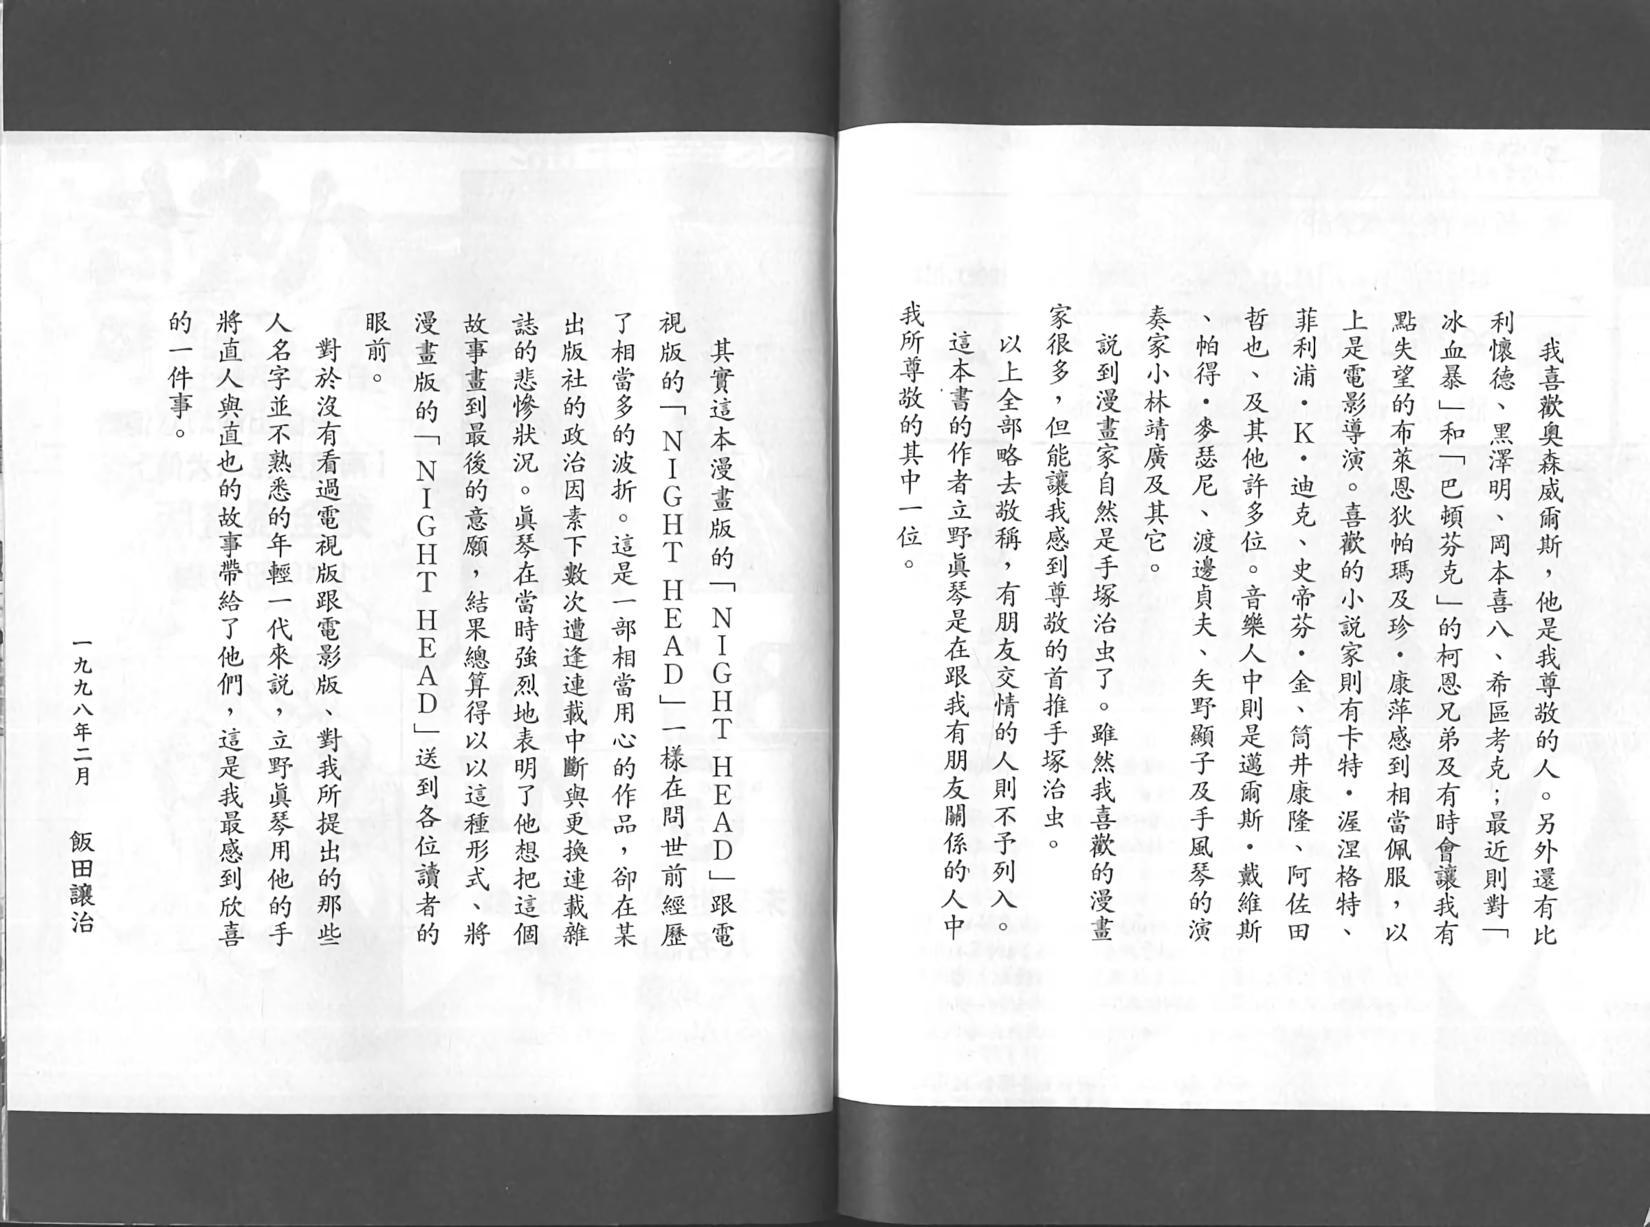 我喜歡奧森威爾斯，他是我尊敬的人。另外還有比
利懷德、黑澤明、岡本喜八、希區考克；最近則對「
冰血暴」和「巴頓芬克」的柯恩兄弟及有時會讓我有
點失望的布萊恩狄帕瑪及珍・康萍感到相當佩服，以
上是電影導演。喜歡的小説家則有卡特・渥涅格特、
菲利浦・K・迪克、史帝芬・金、筒井康隆、阿佐田
哲也、及其他許多位。音樂人中則是邁爾斯・戴維斯
、帕得・麥瑟尼、渡邊貞夫、矢野顯子及手風琴的演
奏家小林靖廣及其它。
說到漫畫家自然是手塚治虫了。雖然我喜歡的漫畫
家很多，但能讓我感到尊敬的首推手塚治虫。
以上全部略去敬稱，有朋友交情的人則不予列入。
這本書的作者立野眞琴是在跟我有朋友關係的人中
我所尊敬的其中一位。
其實這本漫畫版的「NIGHT HEAD」跟電
視版的「NIGHT HEAD」一樣在問世前經歷
了相當多的波折。這是一部相當用心的作品，卻在某
出版社的政治因素下數次遭逢連載中斷與更換連載雜
誌的悲慘狀況。眞琴在當時強烈地表明了他想把這個
故事畫到最後的意願，結果總算得以以這種形式、將
漫畫版的「NIGHT HEAD」送到各位讀者的
眼前。
對於沒有看過電視版跟電影版、對我所提出的那些
人名字並不熟悉的年輕一代來說，立野眞琴用他的手
將直人與直也的故事帶給了他們，這是我最感到欣喜
的一件事。
一九九八年二月　飯田讓治